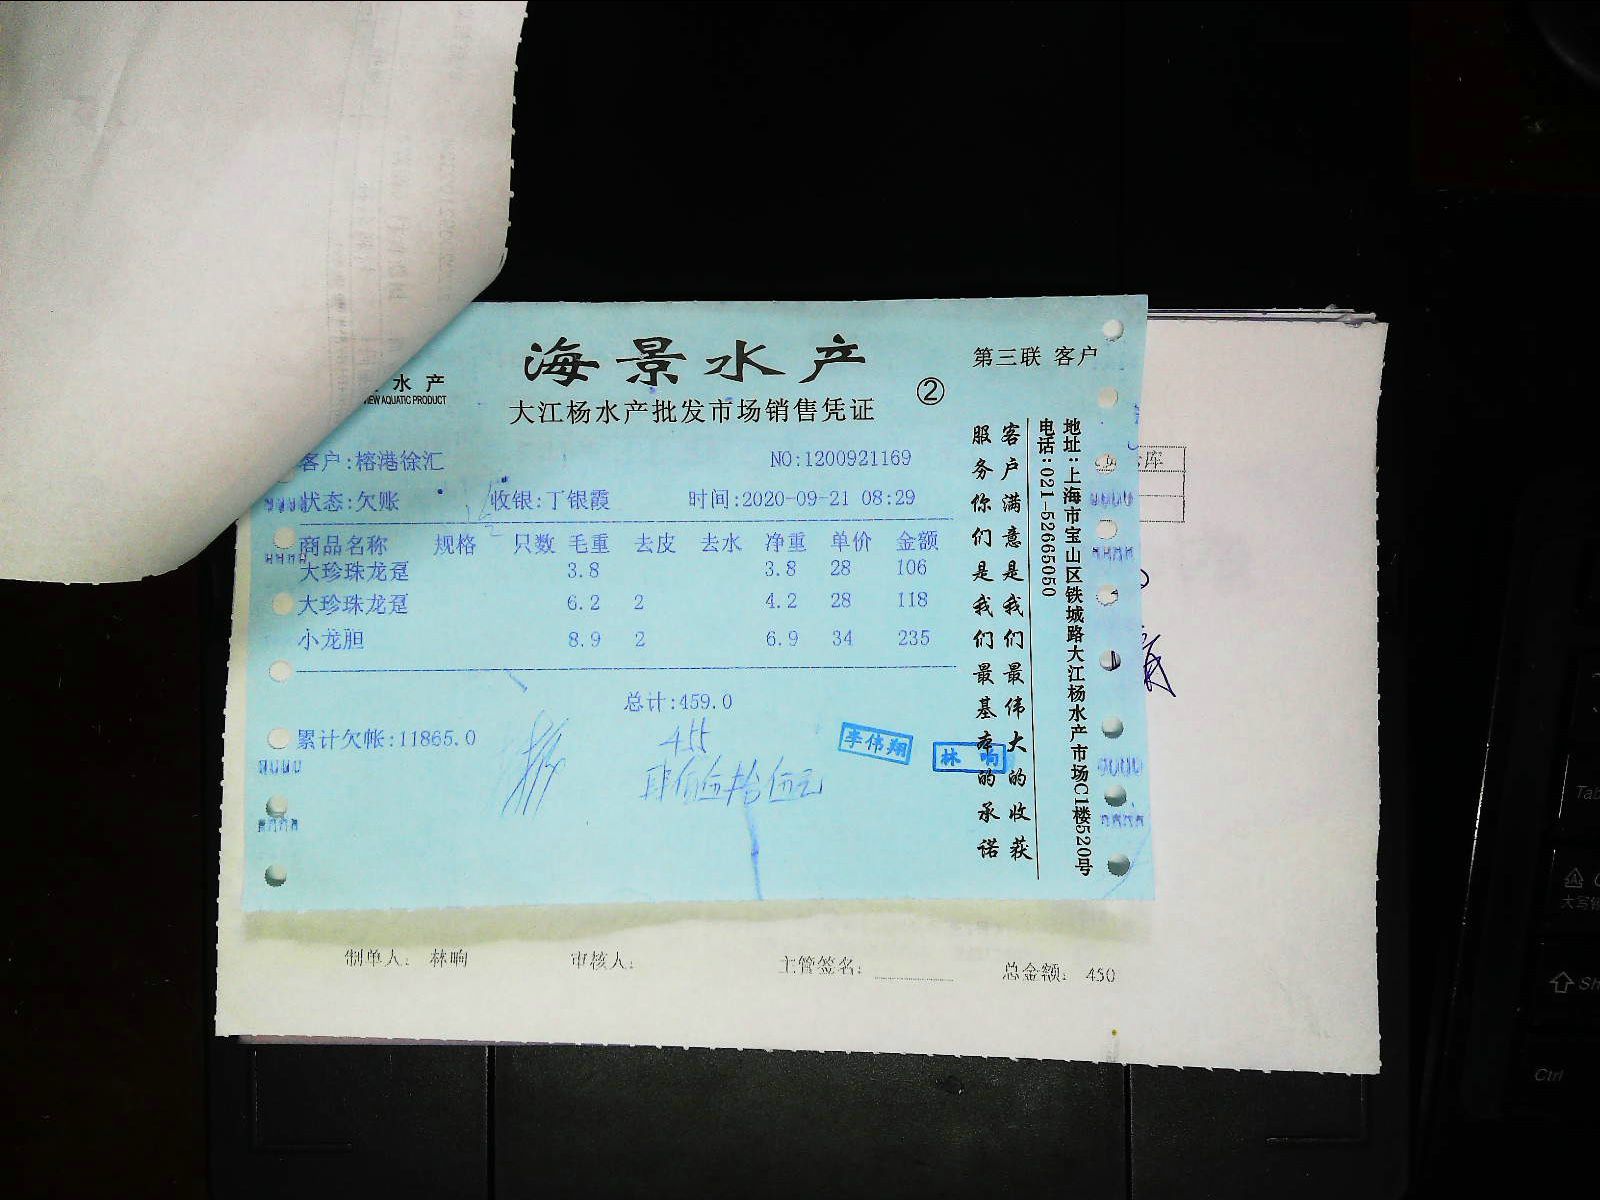 海景水产
第三联 客户
水产
VIEW AQUATIC PRODUCT
②
大江杨水产批发市场销售凭证
客户:榕港徐汇
NO:1200921169
状态:欠账
收银:丁银霞
时间:2020-09-21 08:29
商品名称 规格 只数 毛重 去皮 去水 净重 单价 金额
大珍珠龙趸 3.8 3.8 28 106
大珍珠龙趸 6.2 2 4.2 28 118
小龙胆 8.9 2 6.9 34 235
总计:459.0
累计欠帐:11865.0
455
肆佰伍拾伍元
李伟翔
林响
客户满意是我们最伟大的收获
服务你们是我们最基本的承诺
地址:上海市宝山区铁城路大江杨水产市场C1楼520号
电话:021-52665050
库
制单人: 林响
审核人:
主管签名:
总金额: 450
Tab
大写
Sh
Ctrl